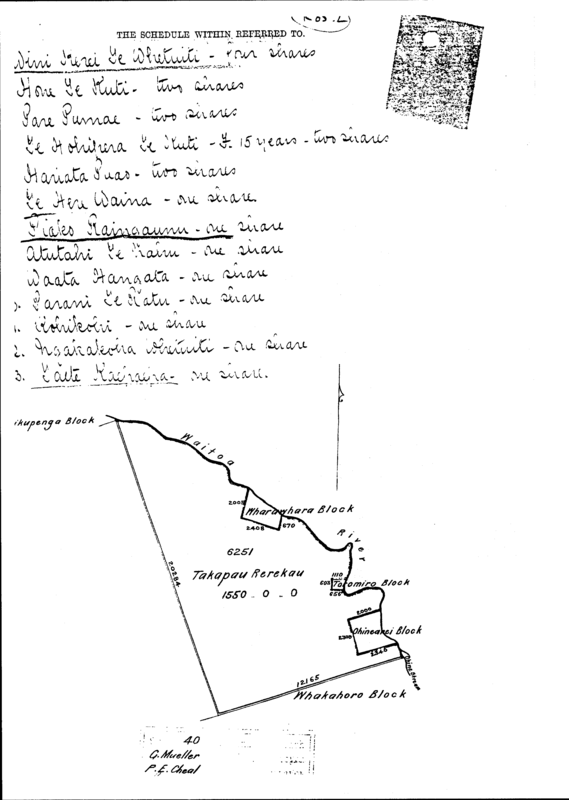 R 03. L
THE SCHEDULE WITHIN REFERRED TO.
Nini Kerei Te Whetuiti - Four shares
Hone Te Kuti - two shares
Pare Pumae - two shares
Te Hohipera Te Kuti - F. 15 years - two shares
Hariata Puao - two shares
Te Here Waina - one share.
Tiako Raingaunu - one share
Atutahi Te - one share
Waata Hangata - one share
Parani Te Katu - one share
1. Kohikohi - one share
2. Ngakakoira Whetuiti - one share
3. - one share.
ikupenga Block
Waitoa
2005
Wharawhara Block
2408
670
River
6251
20284
Takapau Rerekau
1110
605
Toromiro Block
1550 - 0 - 0
656
2000
2300
Ohinearei Block
2346
12165
Whakahoro Block
40
G. Mueller
P. E. Cheal